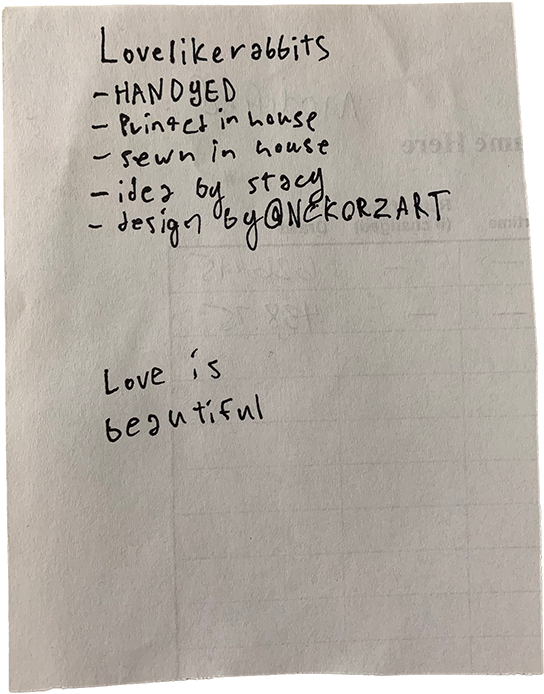 Lovelikerabbits
- HANDYED
- Printed in house
- sewn in house
- idea by stacy
- design by @NCKORZART
Love is
beautiful